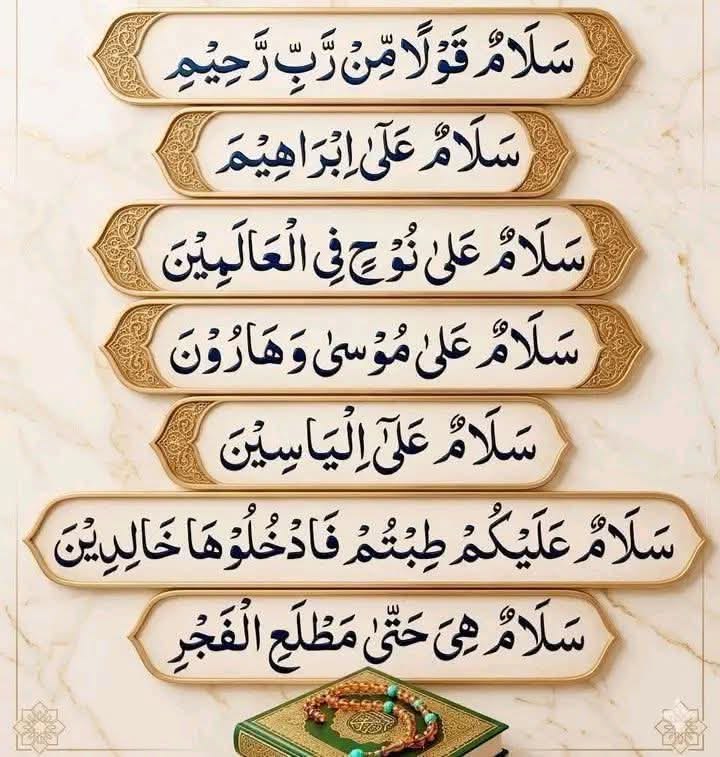 سَلَامٌ قَوْلًا مِّنْ رَّبِّ رَّحِيْمِ
سَلَامٌ عَلَىٰٓ اِبْرَاهِيْمَ
سَلَامٌ عَلٰى نُوْحٍ فِى الْعَالَمِيْنَ
سَلَامٌ عَلٰى مُوْسٰى وَهَارُوْنَ
سَلَامٌ عَلَىٰٓ اِلْيَاسِيْنَ
سَلَامٌ عَلَيْكُمْ طِبْتُمْ فَادْخُلُوْهَا خَالِدِيْنَ
سَلَامٌ هِىَ حَتّٰى مَطْلَعِ الْفَجْرِ